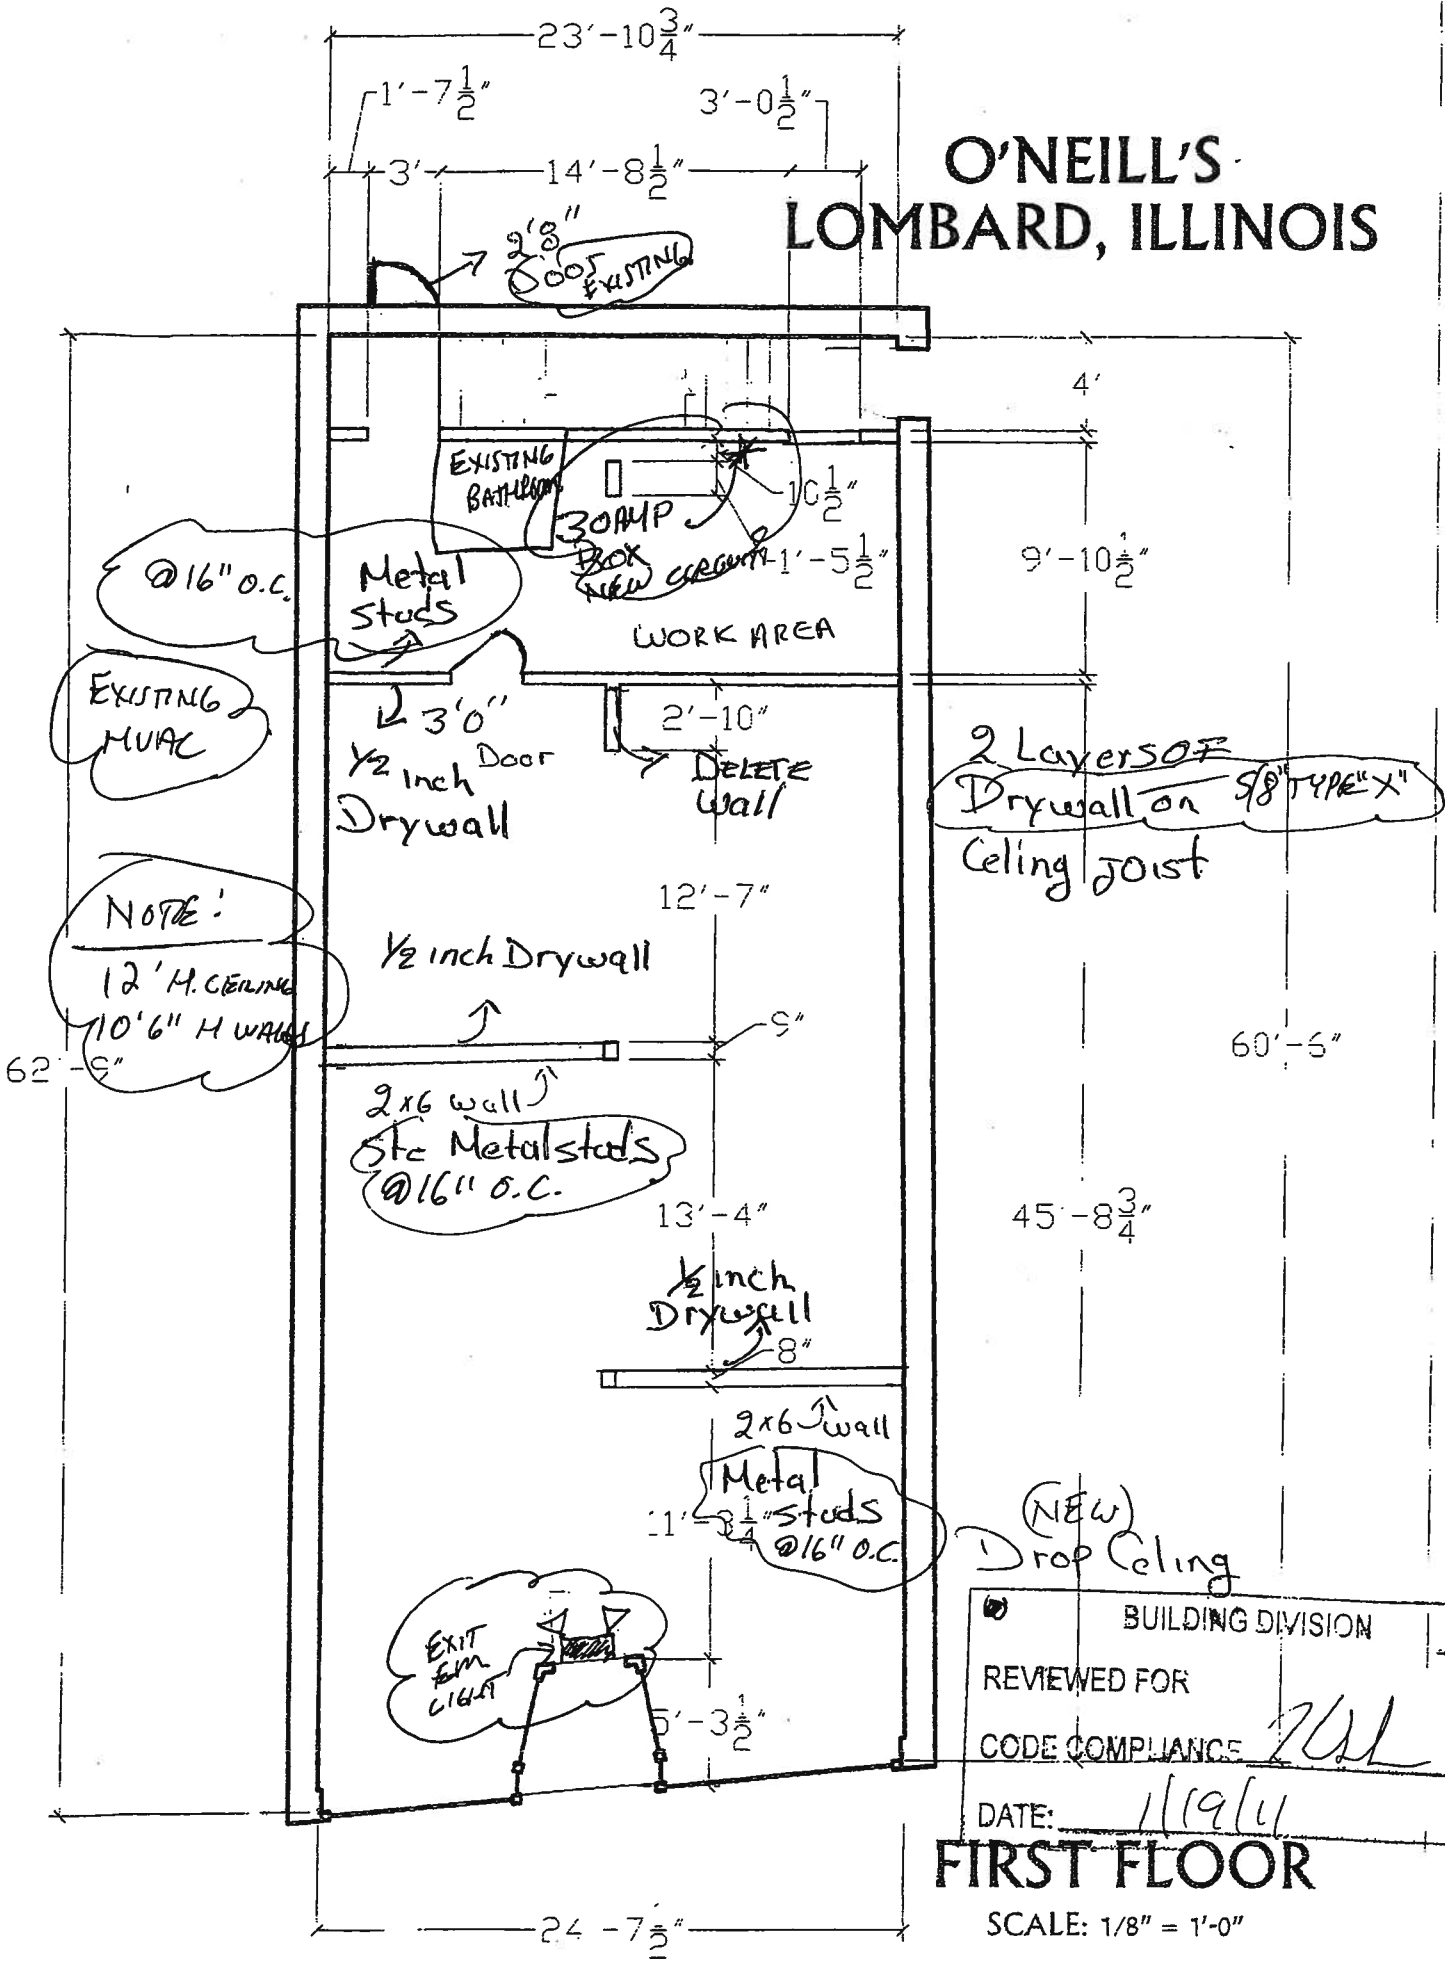 23'-10 3/4"
1'-7 1/2"
3'-0 1/2"
3'
14'-8 1/2"
O'NEILL'S
LOMBARD, ILLINOIS
2'8"
Door
EXISTING
4'
EXISTING
BATHROOM
10 1/2"
30AMP
BOX
NEW CIRCUIT
1'-5 1/2"
9'-10 1/2"
@16" O.C.
Metal
Studs
WORK AREA
EXISTING
HVAC
3'0"
Door
1/2 inch
Drywall
2'-10"
DELETE
Wall
2 Layers OF
Drywall on 5/8" TYPE "X"
Celing JOIST
12'-7"
NOTE:
12' H. CEILING
10'6" H WALLS
1/2 inch Drywall
62'-9"
60'-6"
2x6 wall
Metal studs
@16" O.C.
13'-4"
45'-8 3/4"
1/2 inch
Drywall
8"
2x6 wall
Metal
Studs
@16" O.C.
(NEW)
Drop Celing
EXIT
EM
LIGHT
5'-3 1/2"
BUILDING DIVISION
REVIEWED FOR
CODE COMPLIANCE
DATE: 1/19/11
FIRST FLOOR
SCALE: 1/8" = 1'-0"
24'-7 1/2"